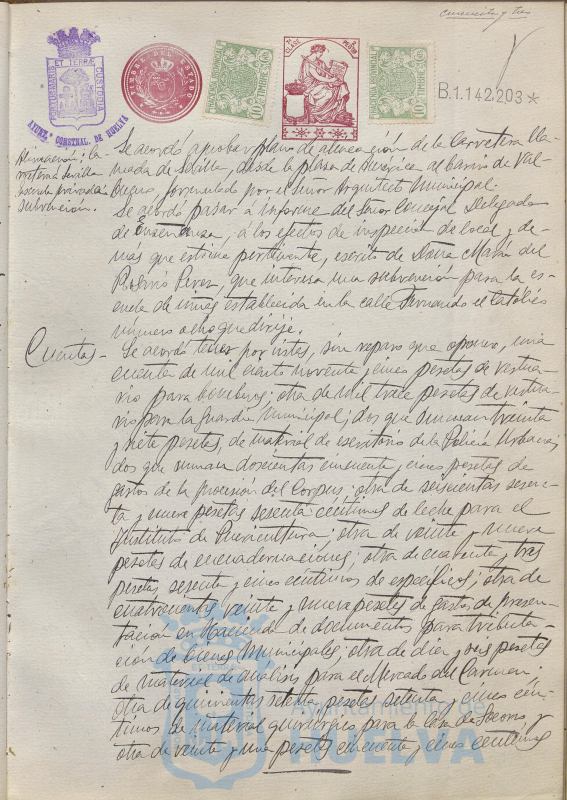 cincuenta y tres
PORTUS MARIS ET TERRAE CUSTODIA
AYUNT. CONSTNAL. DE HUELVA
TIMBRE DEL ESTADO
HACIENDA PROVINCIAL
TIMBRE
10
7ª CLASE
1 PESETA
HACIENDA PROVINCIAL
TIMBRE
10
B.1.142.203*
Alineación; carretera Sevilla
escuela privada
subvención.
Se acordó aprobar plano de alineación de la Carretera lla-
mada de Sevilla, desde la plaza de América al barrio de Val-
bueno, formulado por el señor Arquitecto Municipal.
Se acordó pasar á informe del Señor Concejal Delegado
de Enseñanza, á los efectos de inspección de local y de-
más que estime pertinente, escrito de Doña María del
Rosario Perez, que interesa una subvención para la es-
cuela de niñas establecida en la calle Fernando el Católico
número ocho que dirije.
Cuentas-
Se acordó tener por vistas, sin reparo que oponer, una
cuenta de mil ciento noventa y cinco pesetas de vestua-
rio para bomberos; otra de mil trece pesetas de vestua-
rio para la Guardia Municipal; dos que suman treinta
y siete pesetas, de material de escritorio de la Policía Urbana;
dos que suman doscientas cincuenta y cinco pesetas de
gastos de la procesión del Corpus; otra de seiscientas sesen-
ta y nueve pesetas sesenta céntimos de leche para el
Instituto de Puericultura; otra de veinte y nueve
pesetas de encuadernaciones; otra de cuarenta y tres
pesetas sesenta y cinco céntimos de específicos; otra de
cuatrocientas veinte y nueve pesetas de gastos de presen-
tación en Hacienda de documentos para tributa-
ción de bienes Municipales; otra de diez y seis pesetas
de material de análisis para el Mercado del Carmen;
otra de quinientas setenta pesetas setenta y cinco cén-
timos de material quirúrgico para la Casa de Socorro y
otra de veinte y una pesetas cincuenta y cinco céntimos
Ayuntamiento de
HUELVA